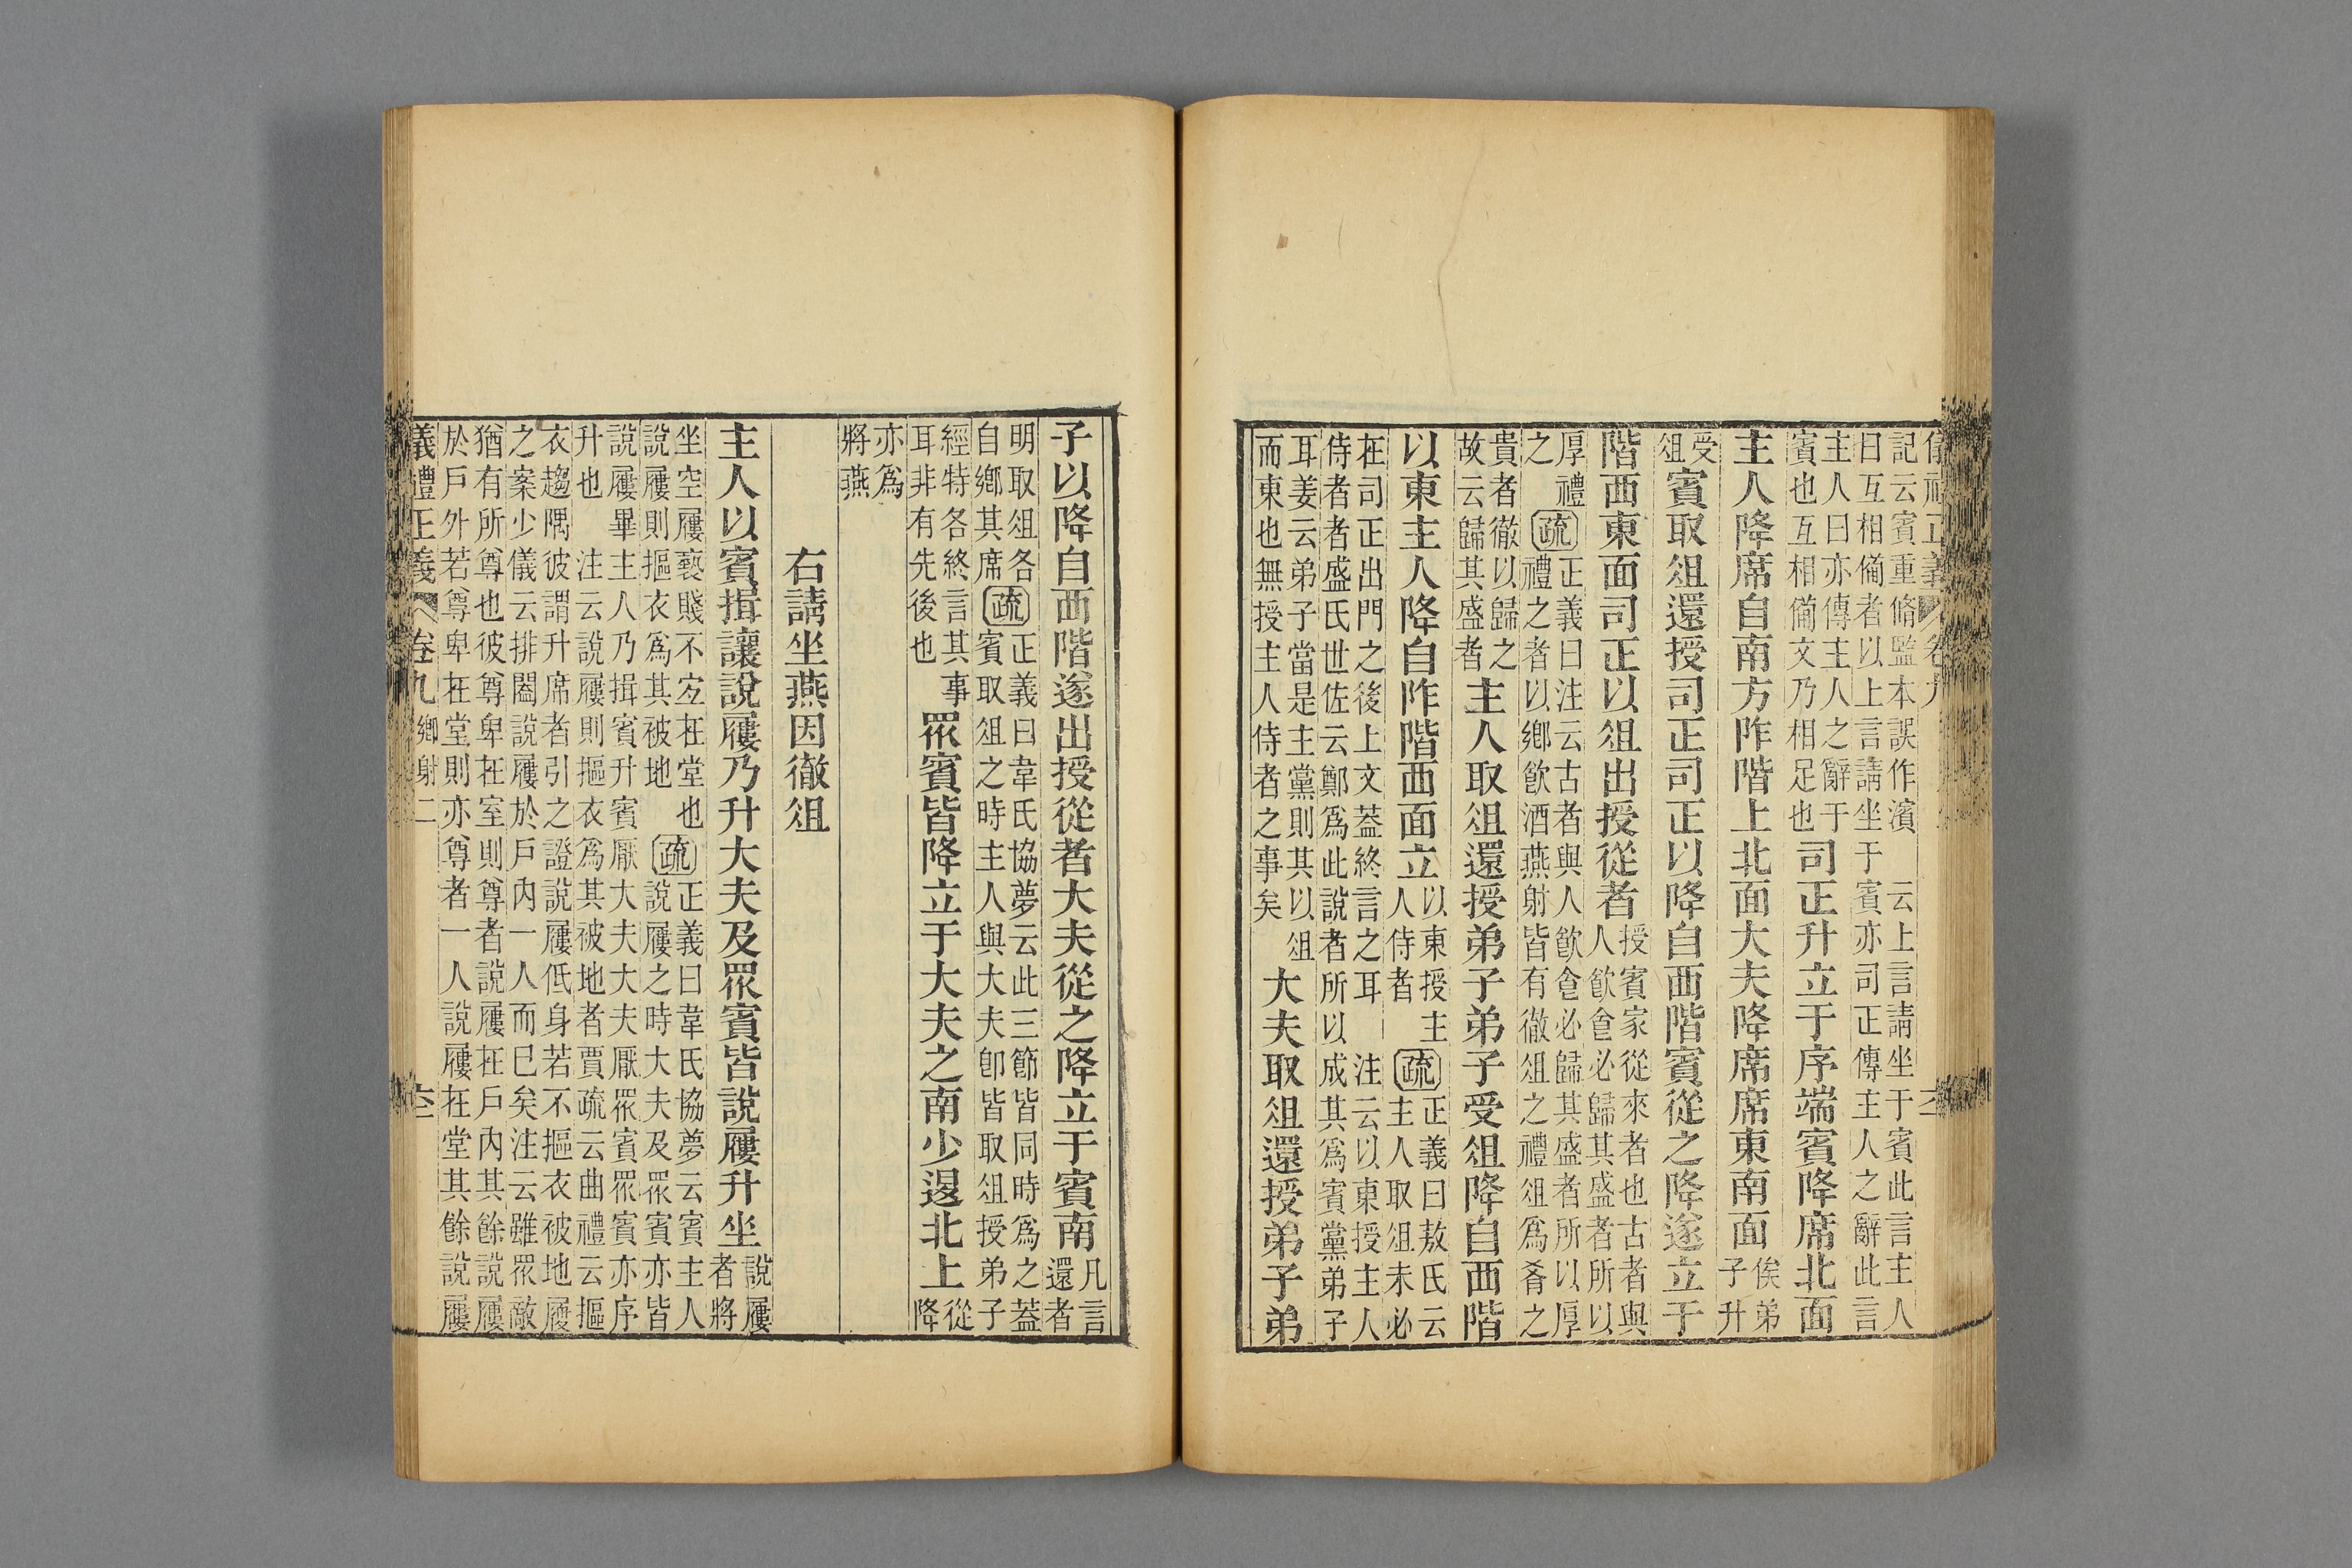 儀禮正義 卷九
記云賓重脩監本誤作濱 云上言請坐于賓此言主人
曰互相備者以上言請坐于賓亦司正傳主人之辭此言
主人曰亦傳主人之辭于
賓也互相備文乃相足也
司正升立于序端賓降席北面
主人降席自南方阼階上北面大夫降席席東南面
俟弟
子升
受
俎
賓取俎還授司正司正以降自西階賓從之降遂立于
階西東面司正以俎出授從者
授賓家從來者也古者與
人飮食必歸其盛者所以
厚禮
之
疏
正義曰注云古者與人飮食必歸其盛者所以厚
禮之者以鄉飮酒燕射皆有徹俎之禮俎爲肴之
貴者徹以歸之
故云歸其盛者
主人取俎還授弟子弟子受俎降自西階
以東主人降自阼階西面立
以東授主
人侍者
疏
正義曰敖氏云
主人取俎未必
在司正出門之後上文蓋終言之耳 注云以東授主人
侍者者盛氏世佐云鄭爲此說者所以成其爲賓黨弟子
耳姜云弟子當是主黨則其以俎
而東也無授主人侍者之事矣
大夫取俎還授弟子弟
子以降自西階遂出授從者大夫從之降立于賓南
凡言
還者
明取俎各
自鄉其席
疏
正義曰韋氏協夢云此三節皆同時爲之蓋
賓取俎之時主人與大夫卽皆取俎授弟子
經特各終言其事
耳非有先後也
眾賓皆降立于大夫之南少退北上
從
降
亦爲
將燕
右請坐燕因徹俎
主人以賓揖讓說屨乃升大夫及眾賓皆說屨升坐
說屨
者將
坐空屨褻賤不宜在堂也
說屨則摳衣爲其被地
疏
正義曰韋氏協夢云賓主人
說屨之時大夫及眾賓亦皆
說屨畢主人乃揖賓升賓厭大夫大夫厭眾賓眾賓亦序
升也 注云說屨則摳衣爲其被地者賈疏云曲禮云摳
衣趨隅彼謂升席者引之證說屨低身若不摳衣被地屨
之案少儀云排闔說屨於戶內一人而已矣注云雖眾敵
猶有所尊也彼尊卑在室則尊者說屨在戶內其餘說屨
於戶外若尊卑在堂則亦尊者一人說屨在堂其餘說屨
義禮正義 卷九 鄉射二